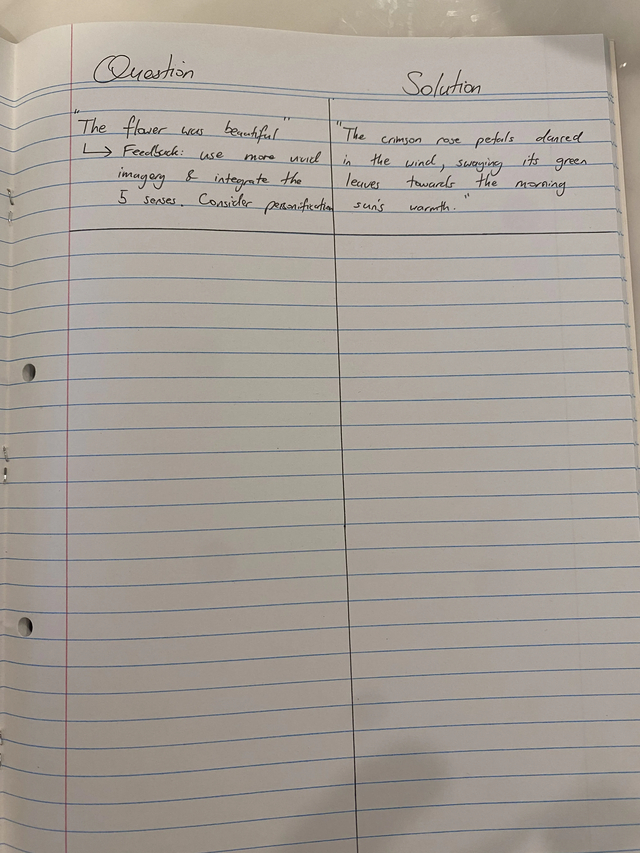 Question
Solution
"The flower was beautiful"
↳ Feedback: use more vivid
imagery & integrate the
5 senses. Consider personification
"The crimson rose petals danced
in the wind, swaying its green
leaves towards the morning
sun's warmth."